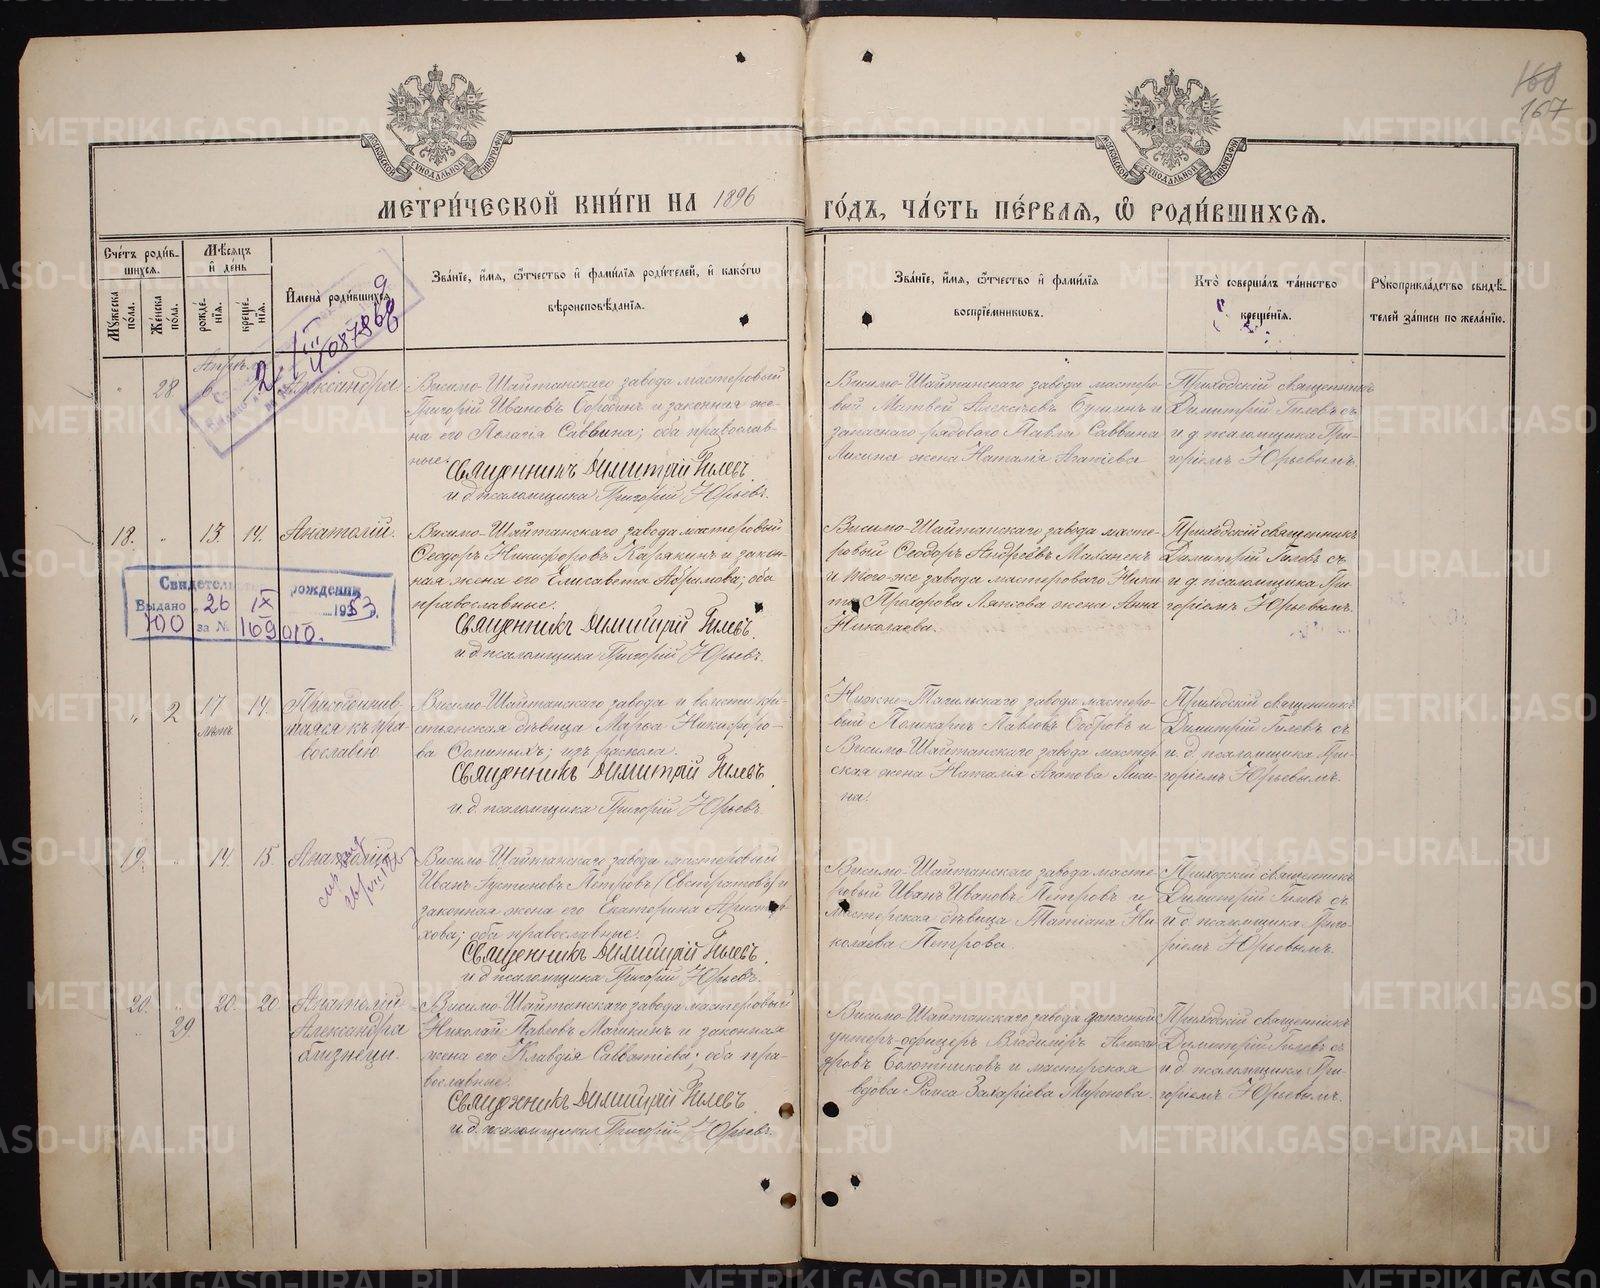 168
167
МЕТРИ́ЧЕСКОЙ КНИ́ГИ НА 1896 ГО́ДЪ, ЧА́СТЬ ПЕ́РВАЯ, Ѽ РОДИ́ВШИХСЯ.
Сче́тъ роди́вшихся.
Мꙋжеска по́ла.
Же́нска по́ла.
Мѣ́сяцъ и҆ де́нь
рожде́нїя.
креще́нїя.
И҆мена̀ роди́вшихся.
Зва́нїе, и҆́мя, ѻ҆́тчество и҆ фами́лїя роди́телей, и҆ како́гѡ вѣроисповѣ́данїя.
Зва́нїе, и҆́мя, ѻ҆́тчество и҆ фами́лїя воспрїе́мникѡвъ.
Кто̀ соверша́лъ та́инство креще́нїя.
Рꙋкоприкла́дство свидѣ́телей за́писи по жела́нїю.
Апрѣль
28. 6 Александра
Висимо-Шайтанскаго завода мастеровый
Григорій Ивановъ Бородинъ и законная же-
на его Пелагія Саввина; оба православ-
ные.
Священникъ Димитрій Гилевъ
и. д. псаломщика Григорій Юрьевъ.
Висимо-Шайтанскаго завода мастеро-
вый Матвей Алексѣевъ Бушинъ и
запаснаго рядоваго Павла Саввина
Лисина жена Наталія Агапіева
Приходскій священникъ
Димитрій Гилевъ съ
и. д. псаломщика Гри-
горіемъ Юрьевымъ.
18. 13. 14. Анатолій.
Висимо-Шайтанскаго завода мастеровый
Ѳеодоръ Никифоровъ Карякинъ и закон-
ная жена его Елисавета Абрамова; оба
православные.
Священникъ Димитрій Гилевъ.
и. д. псаломщика Григорій Юрьевъ.
Висимо-Шайтанскаго завода масте-
ровый Ѳеодоръ Андреевъ
и того-же завода мастероваго Ники-
ты Прохорова жена Анна
Николаева.
Приходскій священникъ
Димитрій Гилевъ съ
и. д. псаломщика Гри-
горіемъ Юрьевымъ.
Свидетельство рождении
Выдано 26 IX 1953.
за № 169010.
2 17 лѣтъ 14. Присоединив-
шаяся къ пра-
вославію
Висимо-Шайтанскаго завода и волости кре-
стьянская дѣвица Марѳа Никифоро-
ва Ѳоминыхъ; изъ раскола.
Священникъ Димитрій Гилевъ.
и. д. псаломщика Григорій Юрьевъ.
Нижне-Тагильскаго завода мастеро-
вый Поликарпъ Павловъ и
Висимо-Шайтанскаго завода мастер-
ская жена Наталія Агапова Лиси-
на.
Приходскій священникъ
Димитрій Гилевъ съ
и. д. псаломщика Гри-
горіемъ Юрьевымъ.
19. 14. 15. Анатолій
Висимо-Шайтанскаго завода мастеровый
Иванъ Іустиновъ Петровъ (Евстратовъ) и
законная жена его Екатерина Аристар-
хова; оба православные.
Священникъ Димитрій Гилевъ.
и. д. псаломщика Григорій Юрьевъ.
Висимо-Шайтанскаго завода масте-
ровый Иванъ Ивановъ Петровъ и
мастерская дѣвица Татіана Ни-
колаева Петрова.
Приходскій священникъ
Димитрій Гилевъ съ
и. д. псаломщика Григо-
ріемъ Юрьевымъ.
20. 20. 20. Анатолій
29. Александра
близнецы.
Висимо-Шайтанскаго завода мастеровый
Николай Павловъ Машкинъ и законная
жена его Клавдія Савватіева; оба пра-
вославные.
Священникъ Димитрій Гилевъ.
и. д. псаломщика Григорій Юрьевъ.
Висимо-Шайтанскаго завода запасный
унтеръ-офицеръ Владиміръ Алексан-
дровъ Болотниковъ и мастерская
вдова Раиса Захаріева Миронова.
Приходскій священникъ
Димитрій Гилевъ съ
и. д. псаломщика Гри-
горіемъ Юрьевымъ.
METRIKI.GASO-URAL.RU